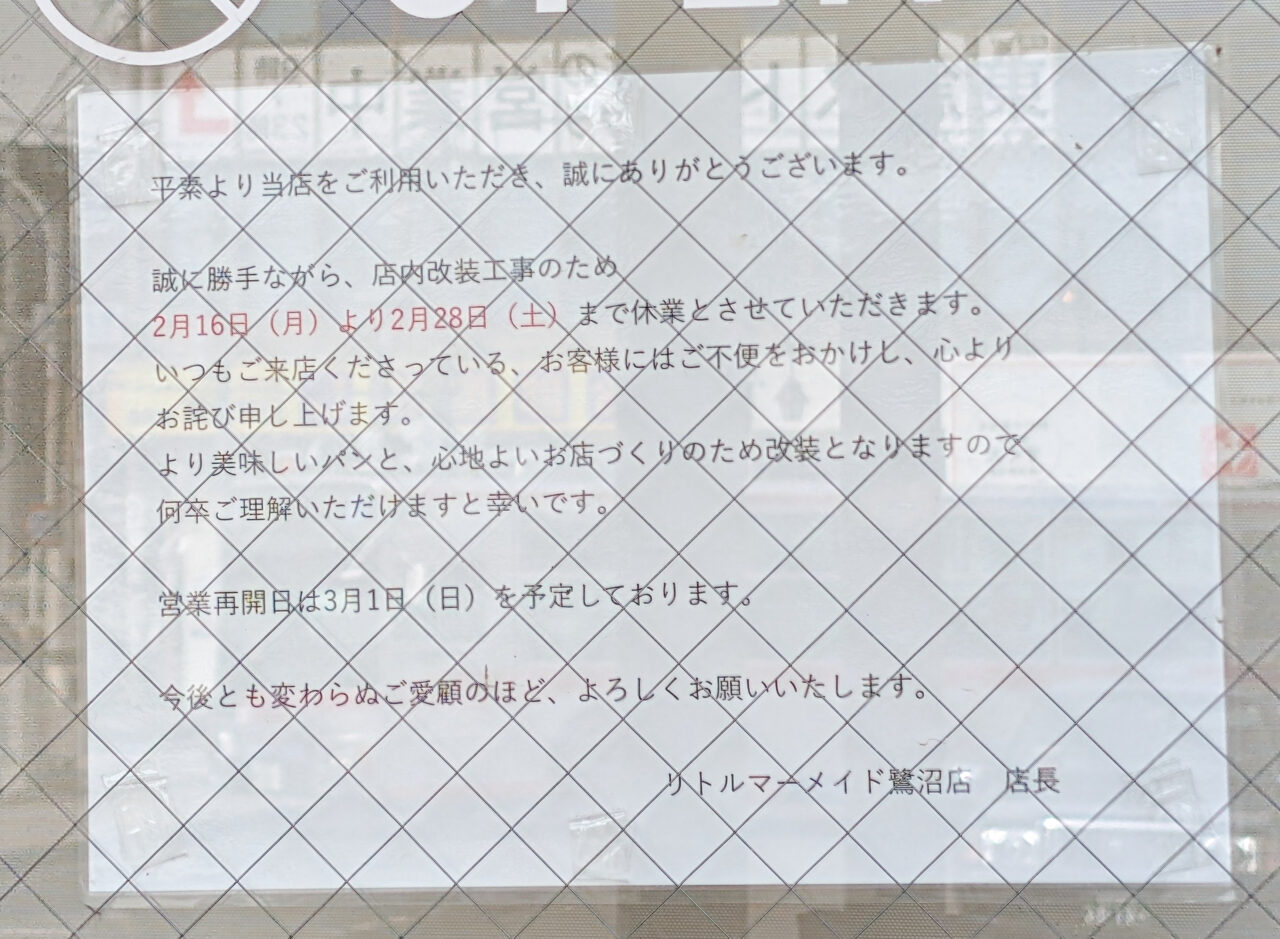 平素より当店をご利用いただき、誠にありがとうございます。
誠に勝手ながら、店内改装工事のため
2月16日（月）より2月28日（土）まで休業とさせていただきます。
いつもご来店くださっている、お客様にはご不便をおかけし、心より
お詫び申し上げます。
より美味しいパンと、心地よいお店づくりのため改装となりますので
何卒ご理解いただけますと幸いです。
営業再開日は3月1日（日）を予定しております。
今後とも変わらぬご愛顧のほど、よろしくお願いいたします。
リトルマーメイド鷺沼店　店長